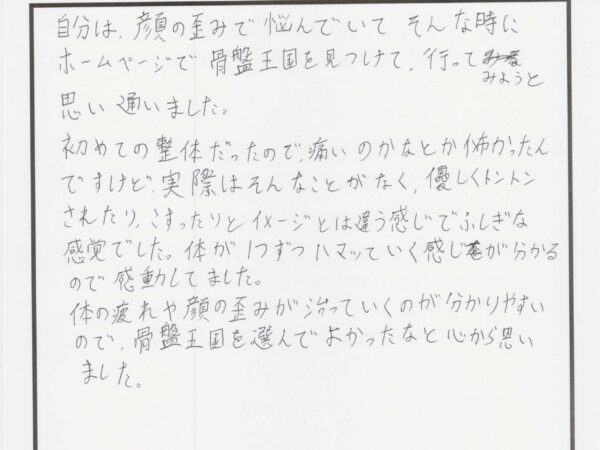 自分は、顔の歪みで悩んでいて そんな時に
ホームページで骨盤王国を見つけて、行って
みようと
思い通いました。
初めての整体だったので、痛いのかなとか怖かったん
ですけど、実際はそんなことがなく、優しくトントン
されたり、こすったりとイメージとは違う感じでふしぎな
感覚でした。体が1つずつハマッていく感じが分かる
ので感動してました。
体の疲れや顔の歪みが治っていくのが分かりやすい
ので、骨盤王国を選んでよかったなと心から思い
ました。